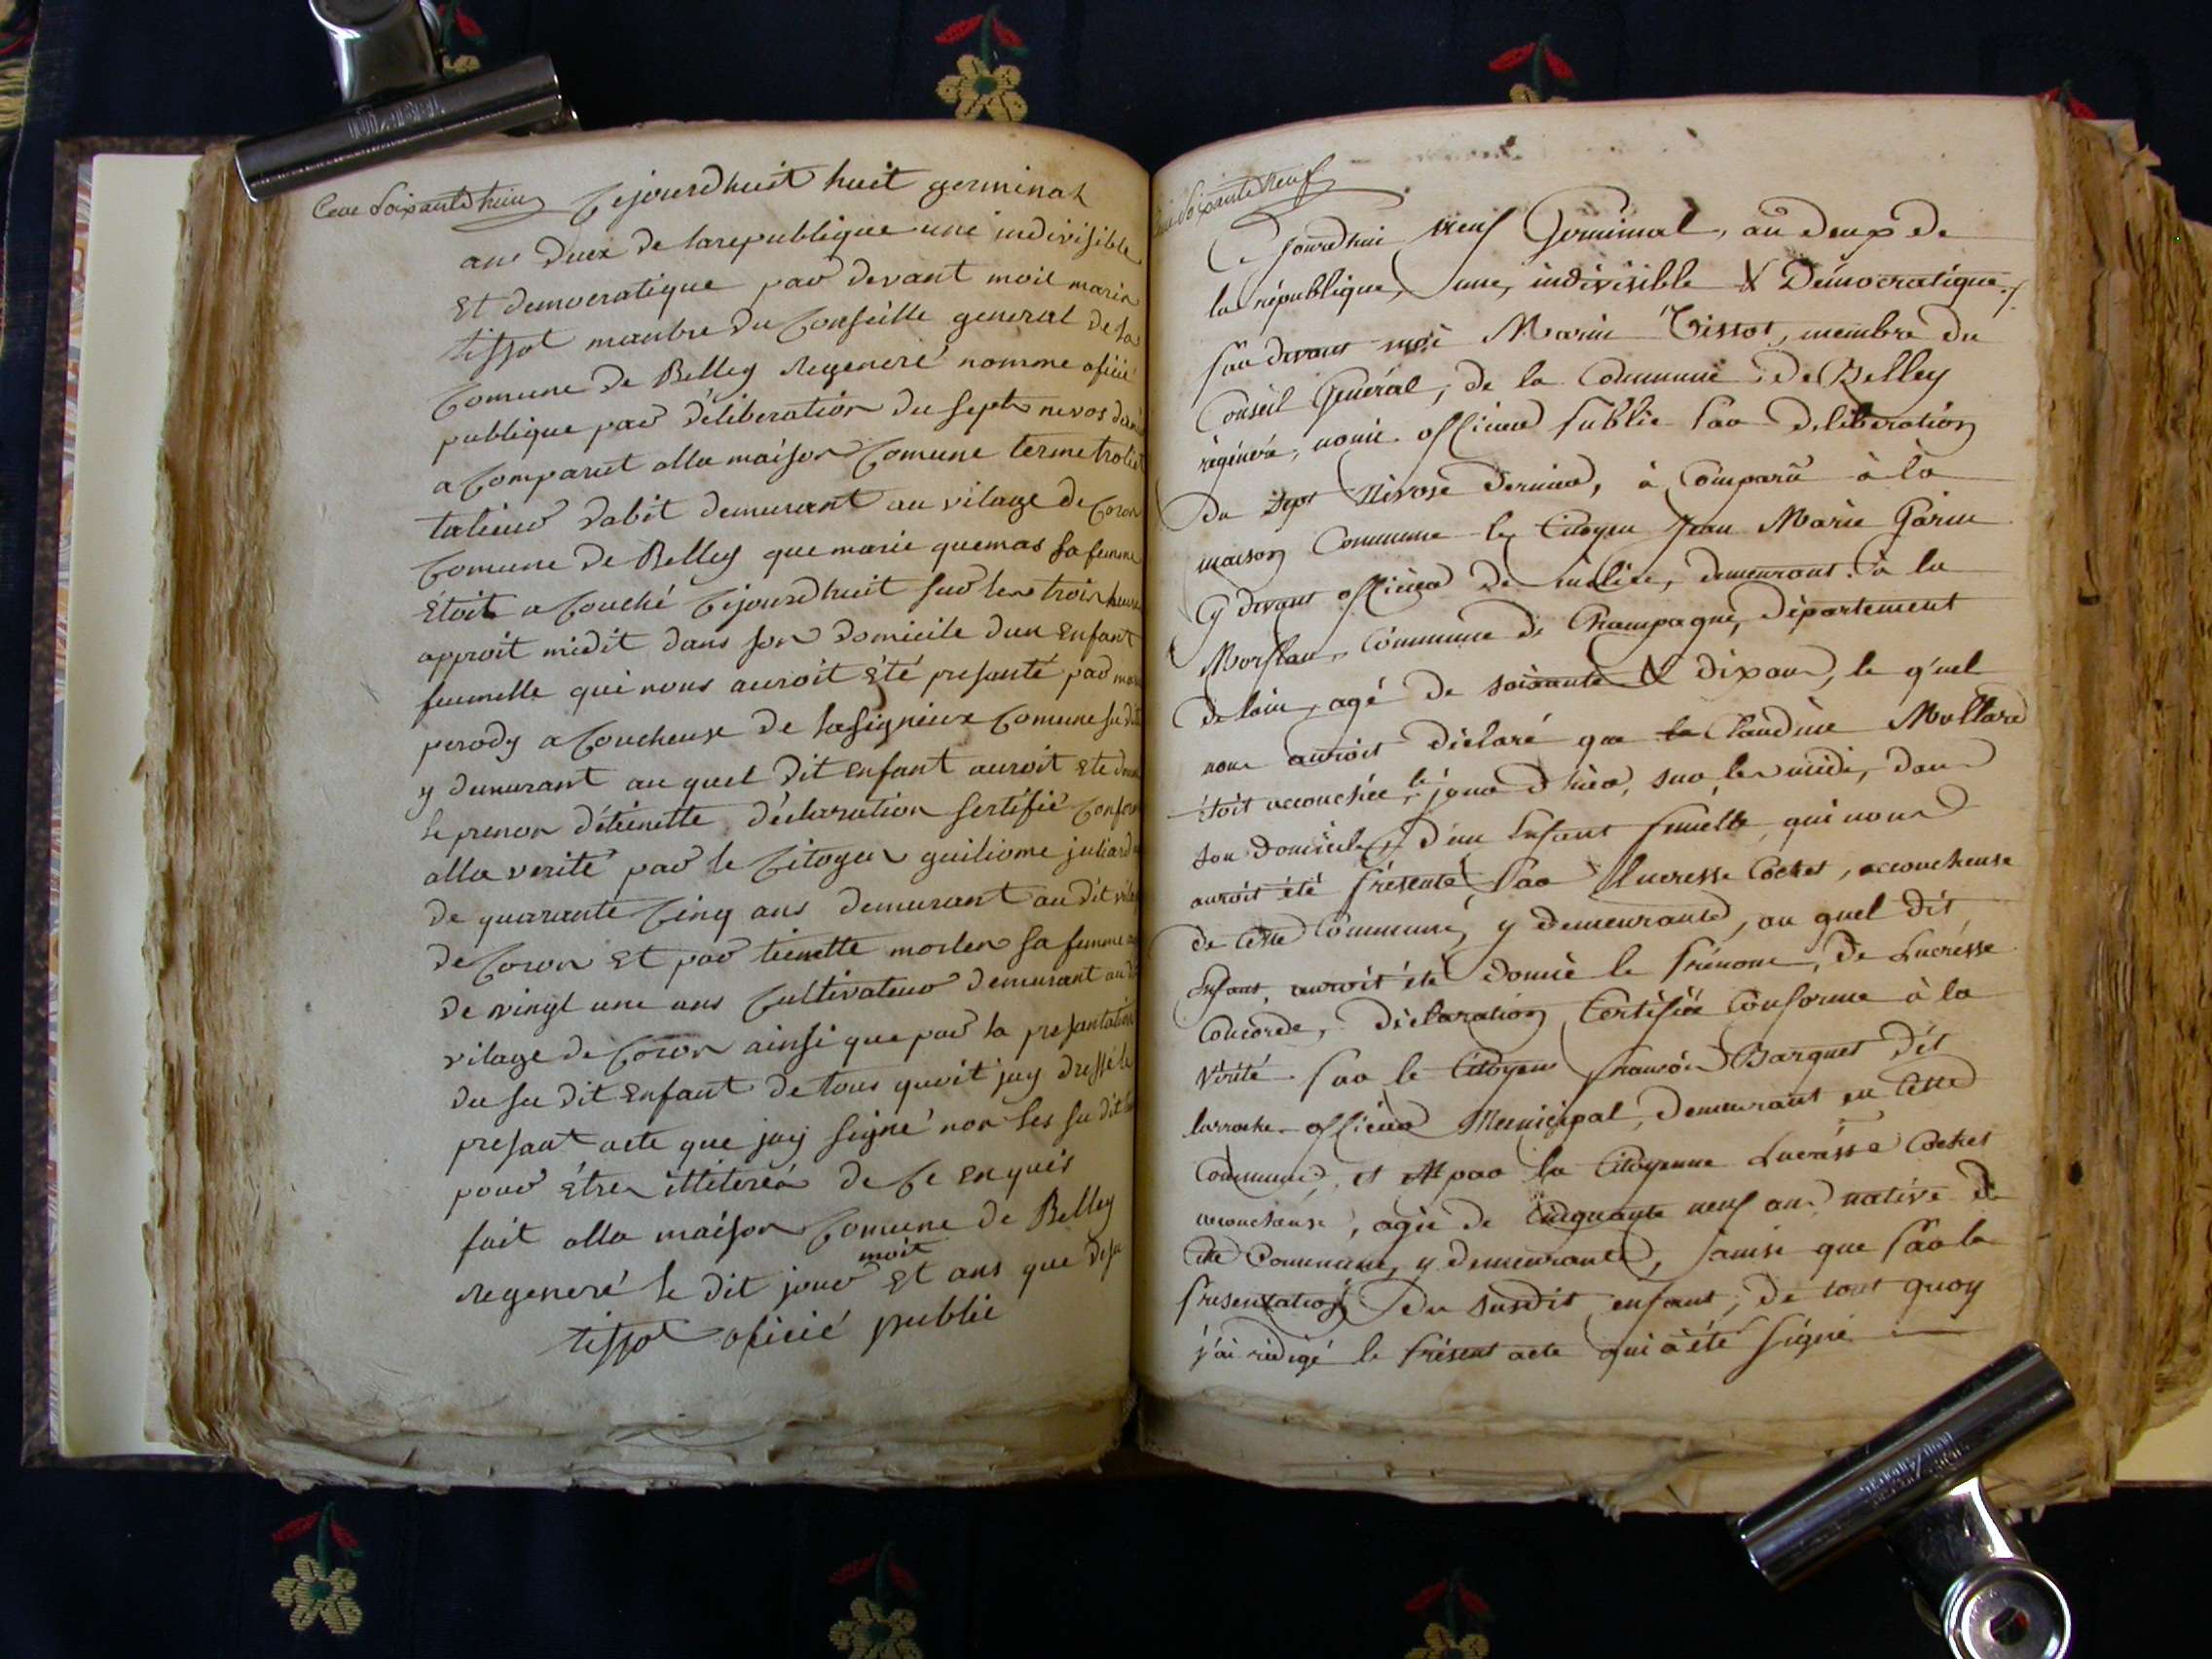 Cent Soixante huit
Cejourdhuit huit germinal
ans duex de larepublique une indivisible
Et democratique par devant moit marin
tissot manbre du Conseille general de la
Comune de Belley regeneré nomme oficié
publique par déliberation du sept nivos
a Comparut alla maison Comune
talieur dabit demurant au vilage de Coron
Comune de Belley que marie quemas sa femme
étoit a Couché Cejourdhuit sur les trois heures
approit midit dans son domicile dun Enfant
feumelle qui nous auroit été presanté par
perody a Coucheuse de Comune su dit
y demurant au quel dit Enfant auroit ete
le prenon détienette déclaration sertifié
alla verité par le Citoyen guiliome
de quarante Cinq ans demurant au dit
de Coron et par tienette morlen sa femme
de vingt une ans Cultivateur demurant au
vilage de Coron ainsi que par la presantation
du su dit Enfant de tous quoit jay dressé le
presant acte que jay signé non les su dit
pour étres illiterés de Ce Enquis
fait alla maison Comune de Belley
moit
regeneré le dit jour et ans que
tissot oficié public
Soixante Neuf
Ce jourd'hui Neuf Germinal, an deux de
la république, une, indivisible & Démocratique,
par devant moi Marin Tissot, membre du
Conseil Général, de la Commune de Belley
régénéré, nomé officier public par déliberation
du Sept Nivose dernier, à Comparû à la
maison Commune le Citoyen Jean Marie Garin
Cy devant officier de milice, demeurant à la
Commune de Champagne, Département
de lain, agé de soixante & dix ans, le quel
nous auroit déclaré que Claudine Mollard
étoit accouchée, le jour d'hier, sur les midi, dans
son Domicile, d'un Enfant femelle, qui nous
auroit été présenté, par Lucresse Cochet, accoucheuse
de cette Commune, y demeurante, au quel dit
Enfant, auroit été donné le prénom, de Lucrésse
Concorde, déclaration Certifiée Conforme à la
Vérité par le Citoyen françois Barquet dit
larroche officier Municipal, demeurant en Cette
Commune, et par la Citoyenne Lucrésse Cochet
accoucheuse, agée de Cinquante neuf ans, native de
Cette Commune, y demeurante, ainsi que par la
présentation du susdit enfant, de tout quoy
j'ai rédigé le présent acte qui a été signé